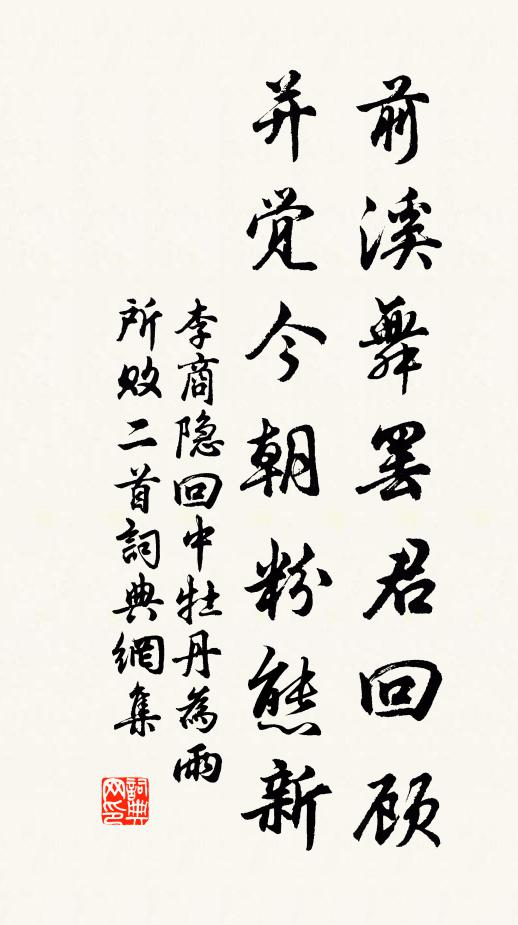 前溪舞罢君回顾
并觉今朝粉態新
李商隐回中牡丹為雨
所败二首詞典網集
詞典网印